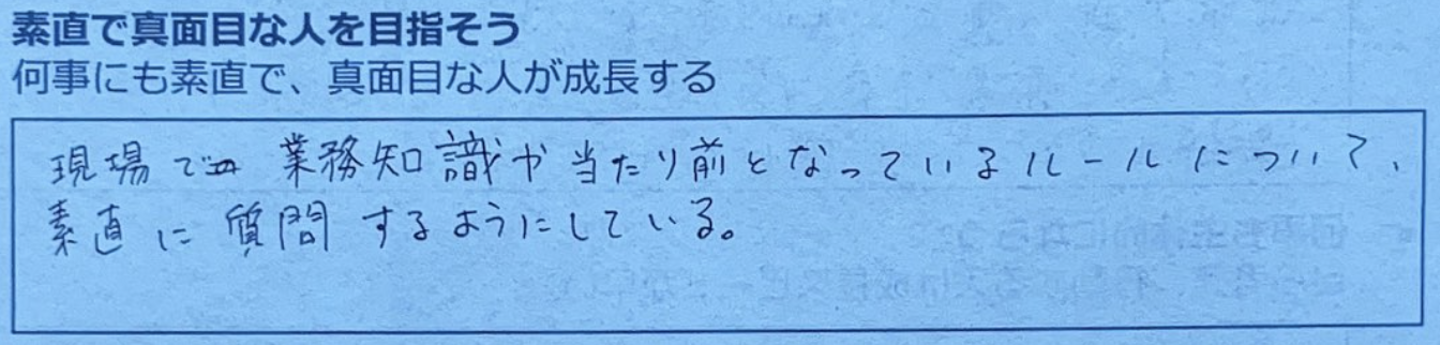 素直で真面目な人を目指そう
何事にも素直で、真面目な人が成長する
現場で 業務知識や当たり前となっているルールについて、
素直に質問するようにしている。